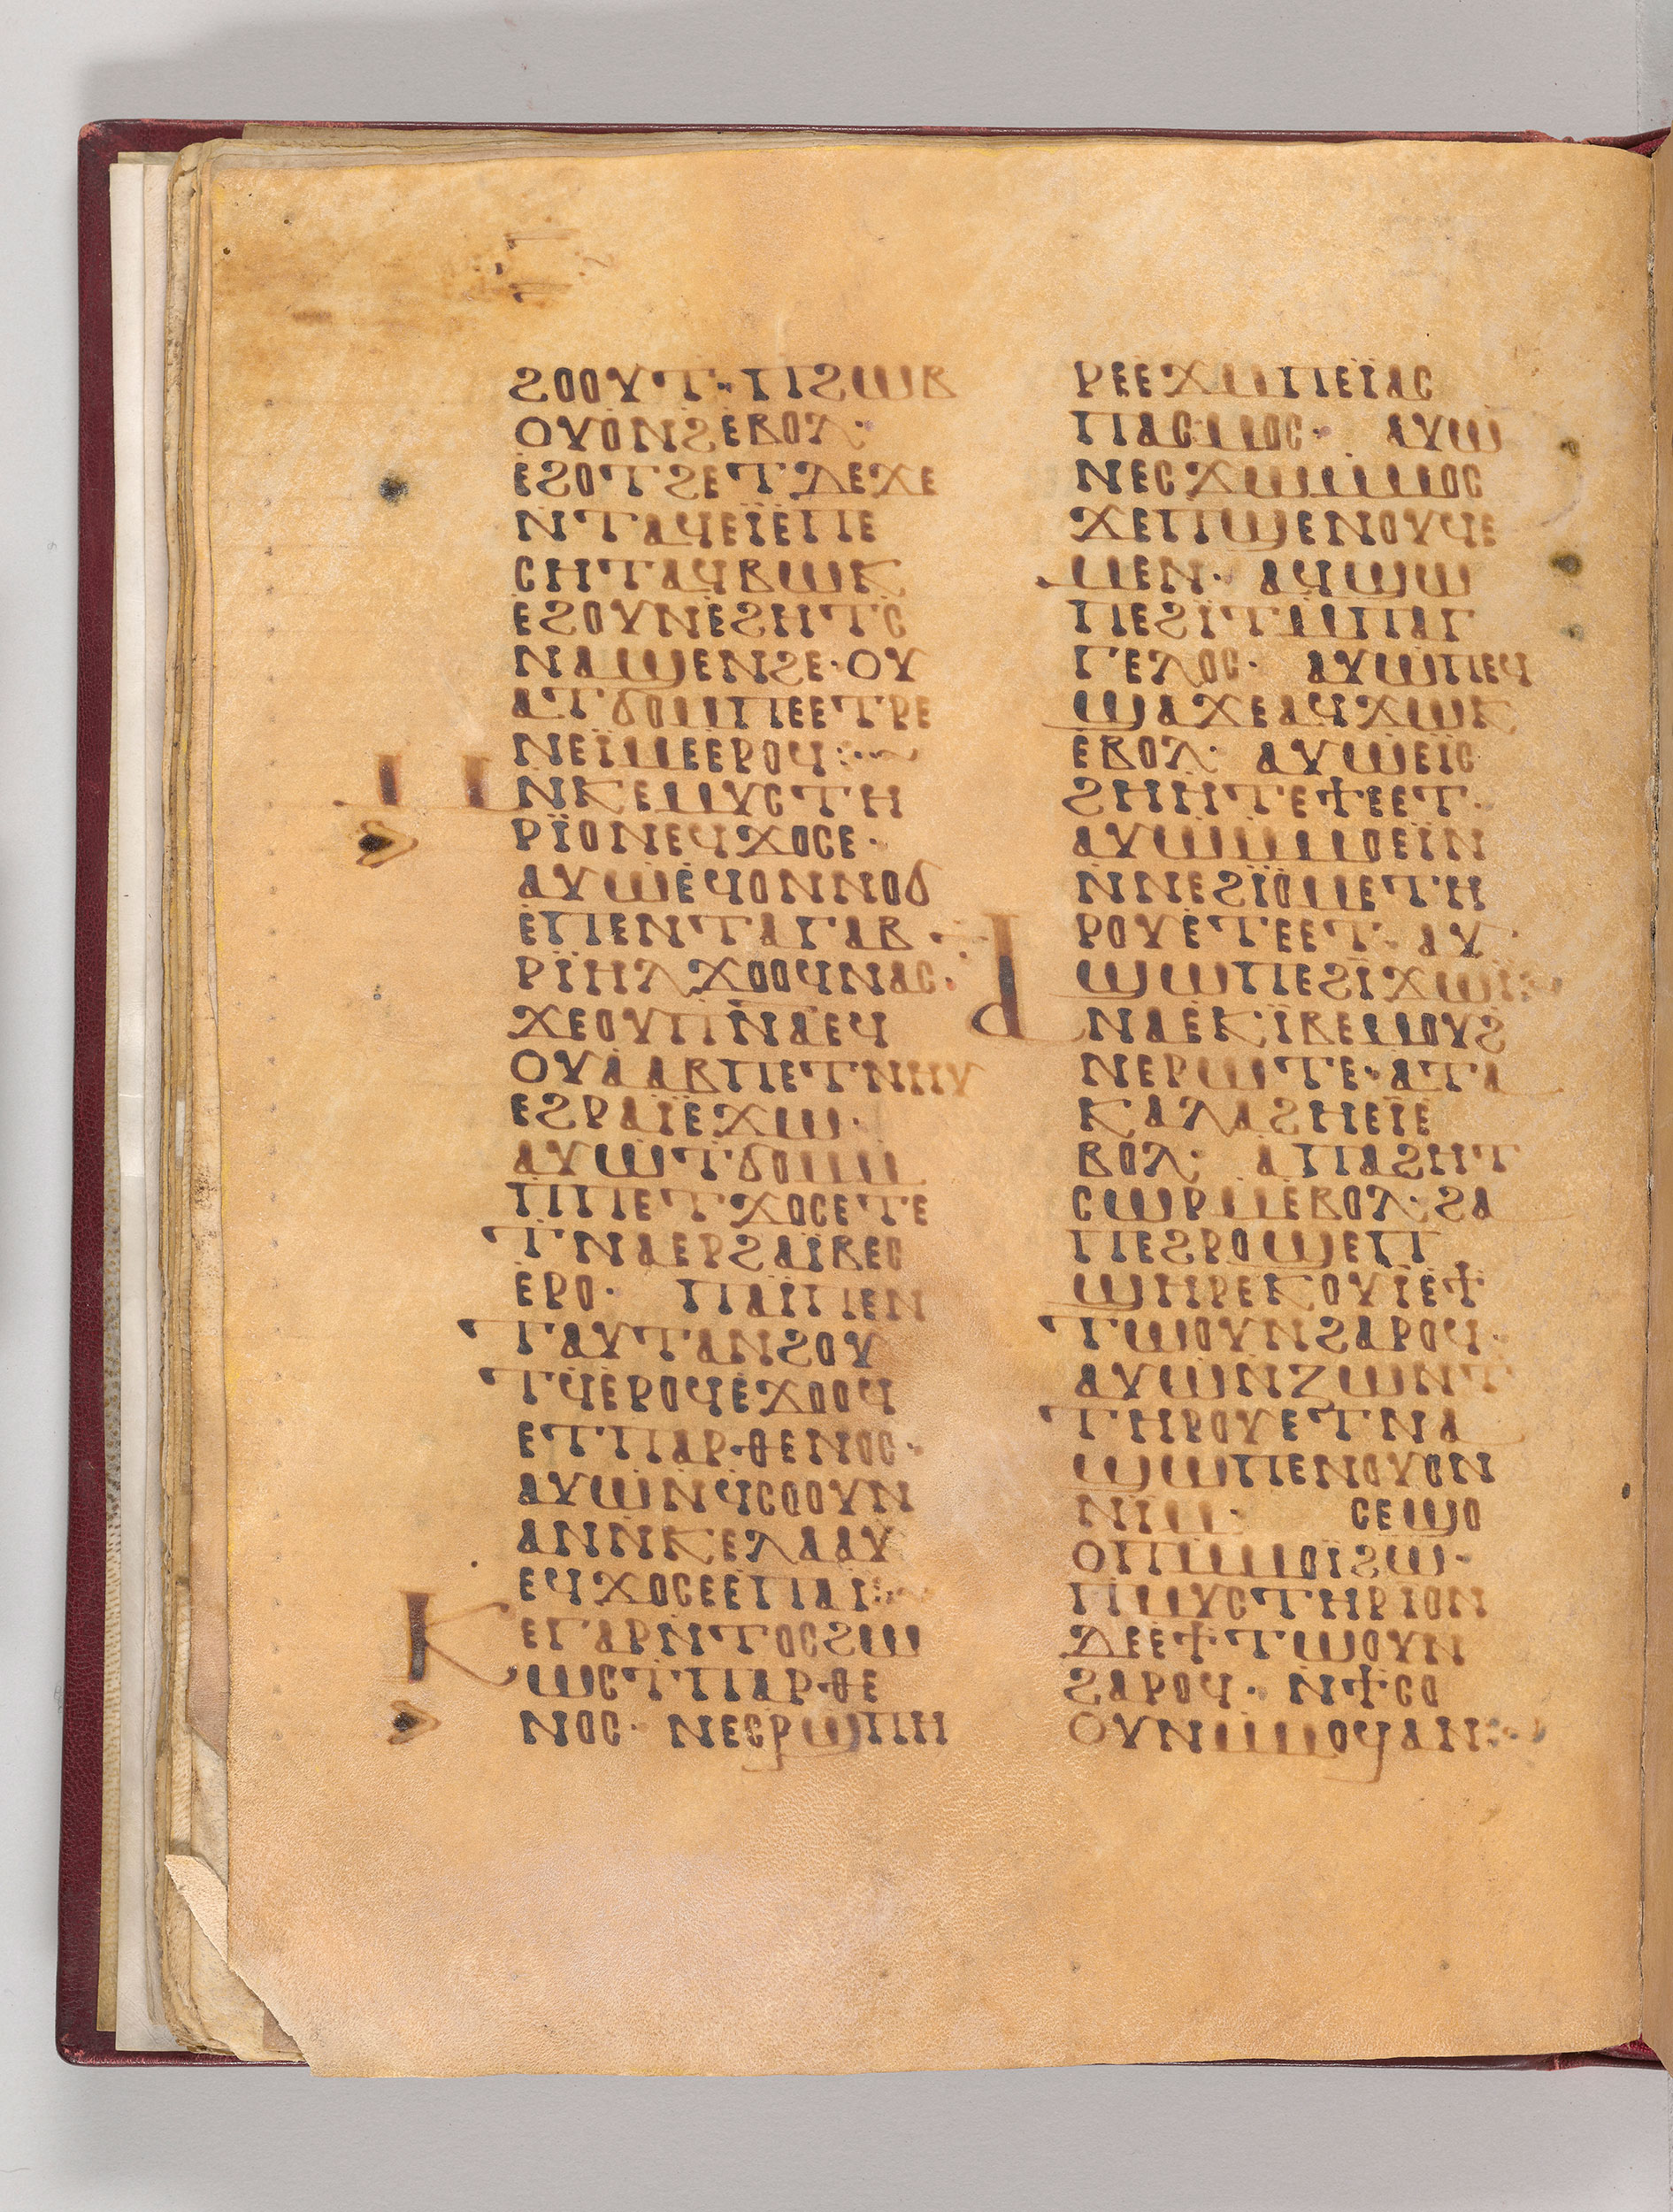 ϩⲟⲟⲩⲧ· ⲡϩⲱⲃ
ⲟⲩⲟⲛϩ ⲉⲃⲟⲗ·
ⲉϩⲟⲧϩⲉⲧ ⲇⲉ ϫⲉ
ⲛⲧⲁϥⲉⲓ̈ ⲉⲡⲉ
ⲥⲏⲧ ⲁϥⲃⲱⲕ
ⲉϩⲟⲩⲛ ⲉϩⲏⲧⲥ
ⲛⲁϣ ⲛϩⲉ· ⲟⲩ
ⲁⲧϭⲟⲙ ⲡⲉ ⲉⲧⲣⲉ
ⲛⲉⲓⲙⲉ ⲉⲣⲟϥ:·~
Ⲙⲛ ⲕⲉⲙⲩⲥⲧⲏ
ⲣⲓ̈ⲟⲛ ⲉϥϫⲟⲥⲉ·
ⲁⲩⲱ ⲉϥⲟ ⲛⲛⲟϭ
ⲉⲡⲉⲛⲧⲁ ⲅⲁⲃ·
ⲣⲓ̈ⲏⲗ ϫⲟⲟϥ ⲛⲁⲥ·
ϫⲉ ⲟⲩⲡⲛⲁ ⲉϥ
ⲟⲩⲁⲁⲃ ⲡⲉⲧⲛⲏⲩ
ⲉϩⲣⲁⲓ̈ ⲉϫⲱ·
ⲁⲩⲱ ⲧϭⲟⲙ
ⲙⲡⲉⲧϫⲟⲥⲉ ⲧⲉ
ⲧⲛⲁⲉⲣϩⲁⲓⲃⲉⲥ
ⲉⲣⲟ· ⲡⲁⲓ̈ ⲡⲉⲛ
ⲧⲁⲩⲧⲁⲛϩⲟⲩ
ⲧϥ ⲉⲣⲟϥ ⲉϫⲟⲟϥ
ⲉⲧⲡⲁⲣⲑⲉⲛⲟⲥ·
ⲁⲩⲱ ⲛϥⲥⲟⲟⲩⲛ
ⲁⲛ ⲛⲕⲉⲗⲁⲁⲩ
ⲉϥϫⲟⲥⲉ ⲉⲡⲁⲓ:~
Ⲕⲉ ⲅⲁⲣ ⲛⲧⲟⲥ ϩⲱ
ⲱⲥ ⲧⲡⲁⲣⲑⲉ
ⲛⲟⲥ· ⲛⲉⲥⲣϣⲡⲏ
ⲣⲉ ⲉϫⲙ ⲡⲉⲓ̈ⲁⲥ
ⲡⲁⲥⲙⲟⲥ· ⲁⲩⲱ
ⲛⲉⲥϫⲱ ⲙⲙⲟⲥ
ϫⲉ ⲡϣⲉⲛⲟⲩϥⲉ
ⲙⲉⲛ· ⲁϥϣⲱ
ⲡⲉ ϩⲓⲧⲙ ⲡⲁⲅ
ⲅⲉⲗⲟⲥ· ⲁⲩⲱ ⲡⲉϥ
ϣⲁϫⲉ ⲁϥϫⲱⲕ
ⲉⲃⲟⲗ· ⲁⲩⲱ ⲉⲓⲥ
ϩⲏⲏⲧⲉ ϯⲉⲉⲧ·
ⲁⲩⲱ ⲙⲙⲟⲉⲓ̈ⲛ
ⲛⲛⲉϩⲓ̈ⲟⲙⲉ ⲧⲏ
ⲣⲟⲩ ⲉⲧⲉⲉⲧ· ⲁⲩ
ϣⲱⲡⲉ ϩⲓϫⲱⲓ̈:·
Ⲁⲛⲁⲉⲕⲓⲃⲉ ⲙⲟⲩϩ
ⲛⲉⲣⲱⲧⲉ· ⲁⲧⲁ
ⲕⲁⲗⲁϩⲏ ⲉⲓ̈ ⲉ
ⲃⲟⲗ· ⲁⲡⲁϩⲏⲧ
ⲥⲱⲣⲙ ⲉⲃⲟⲗ· ϩⲁ
ⲡⲉϩⲣⲟϣ ⲉⲡ
ϣⲏⲣⲉ ⲕⲟⲩⲓ ⲉϯ
ⲧⲱⲟⲩⲛ ϩⲁⲣⲟϥ·
ⲁⲩⲱ ⲛⲍⲱⲛⲧ
ⲧⲏⲣⲟⲩ ⲉⲧⲛⲁ
ϣⲱⲡⲉ ⲛⲟⲩⲟⲛ
ⲛⲓⲙ· ⲥⲉϣⲟ
ⲟⲡ ⲙⲙⲟⲓ̈ ϩⲱ·
ⲡⲙⲩⲥⲧⲏⲣⲓⲟⲛ
ⲇⲉ ⲉϯⲧⲱⲟⲩⲛ
ϩⲁⲣⲟϥ· ⲛϯⲥⲟ
ⲟⲩⲛ ⲙⲙⲟϥ ⲁⲛ:·